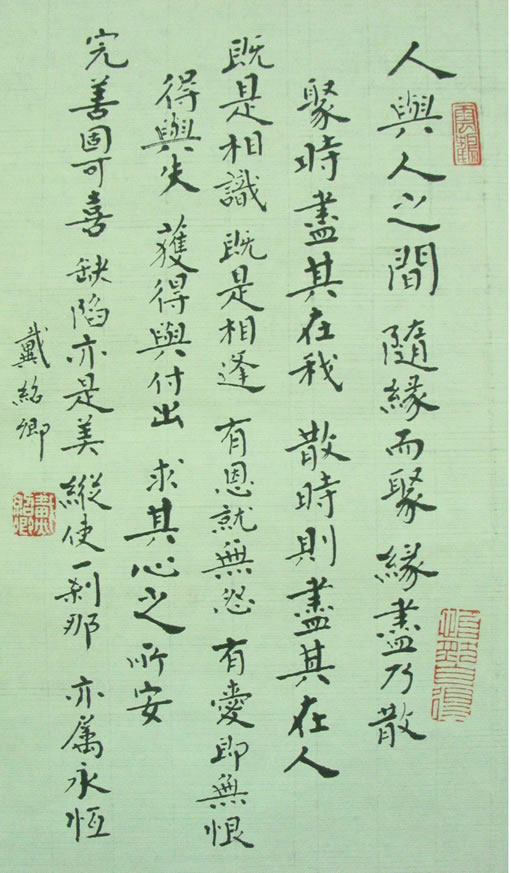 人與人之間 隨緣而聚 緣盡乃散
聚時盡其在我 散時則盡其在人
既是相識 既是相逢 有恩就無怨 有愛即無恨
得與失 獲得與付出 求其心之所安
完善固可喜 缺陷亦是美 縱使一剎那 亦属永恆
戴紹卿
戴紹卿